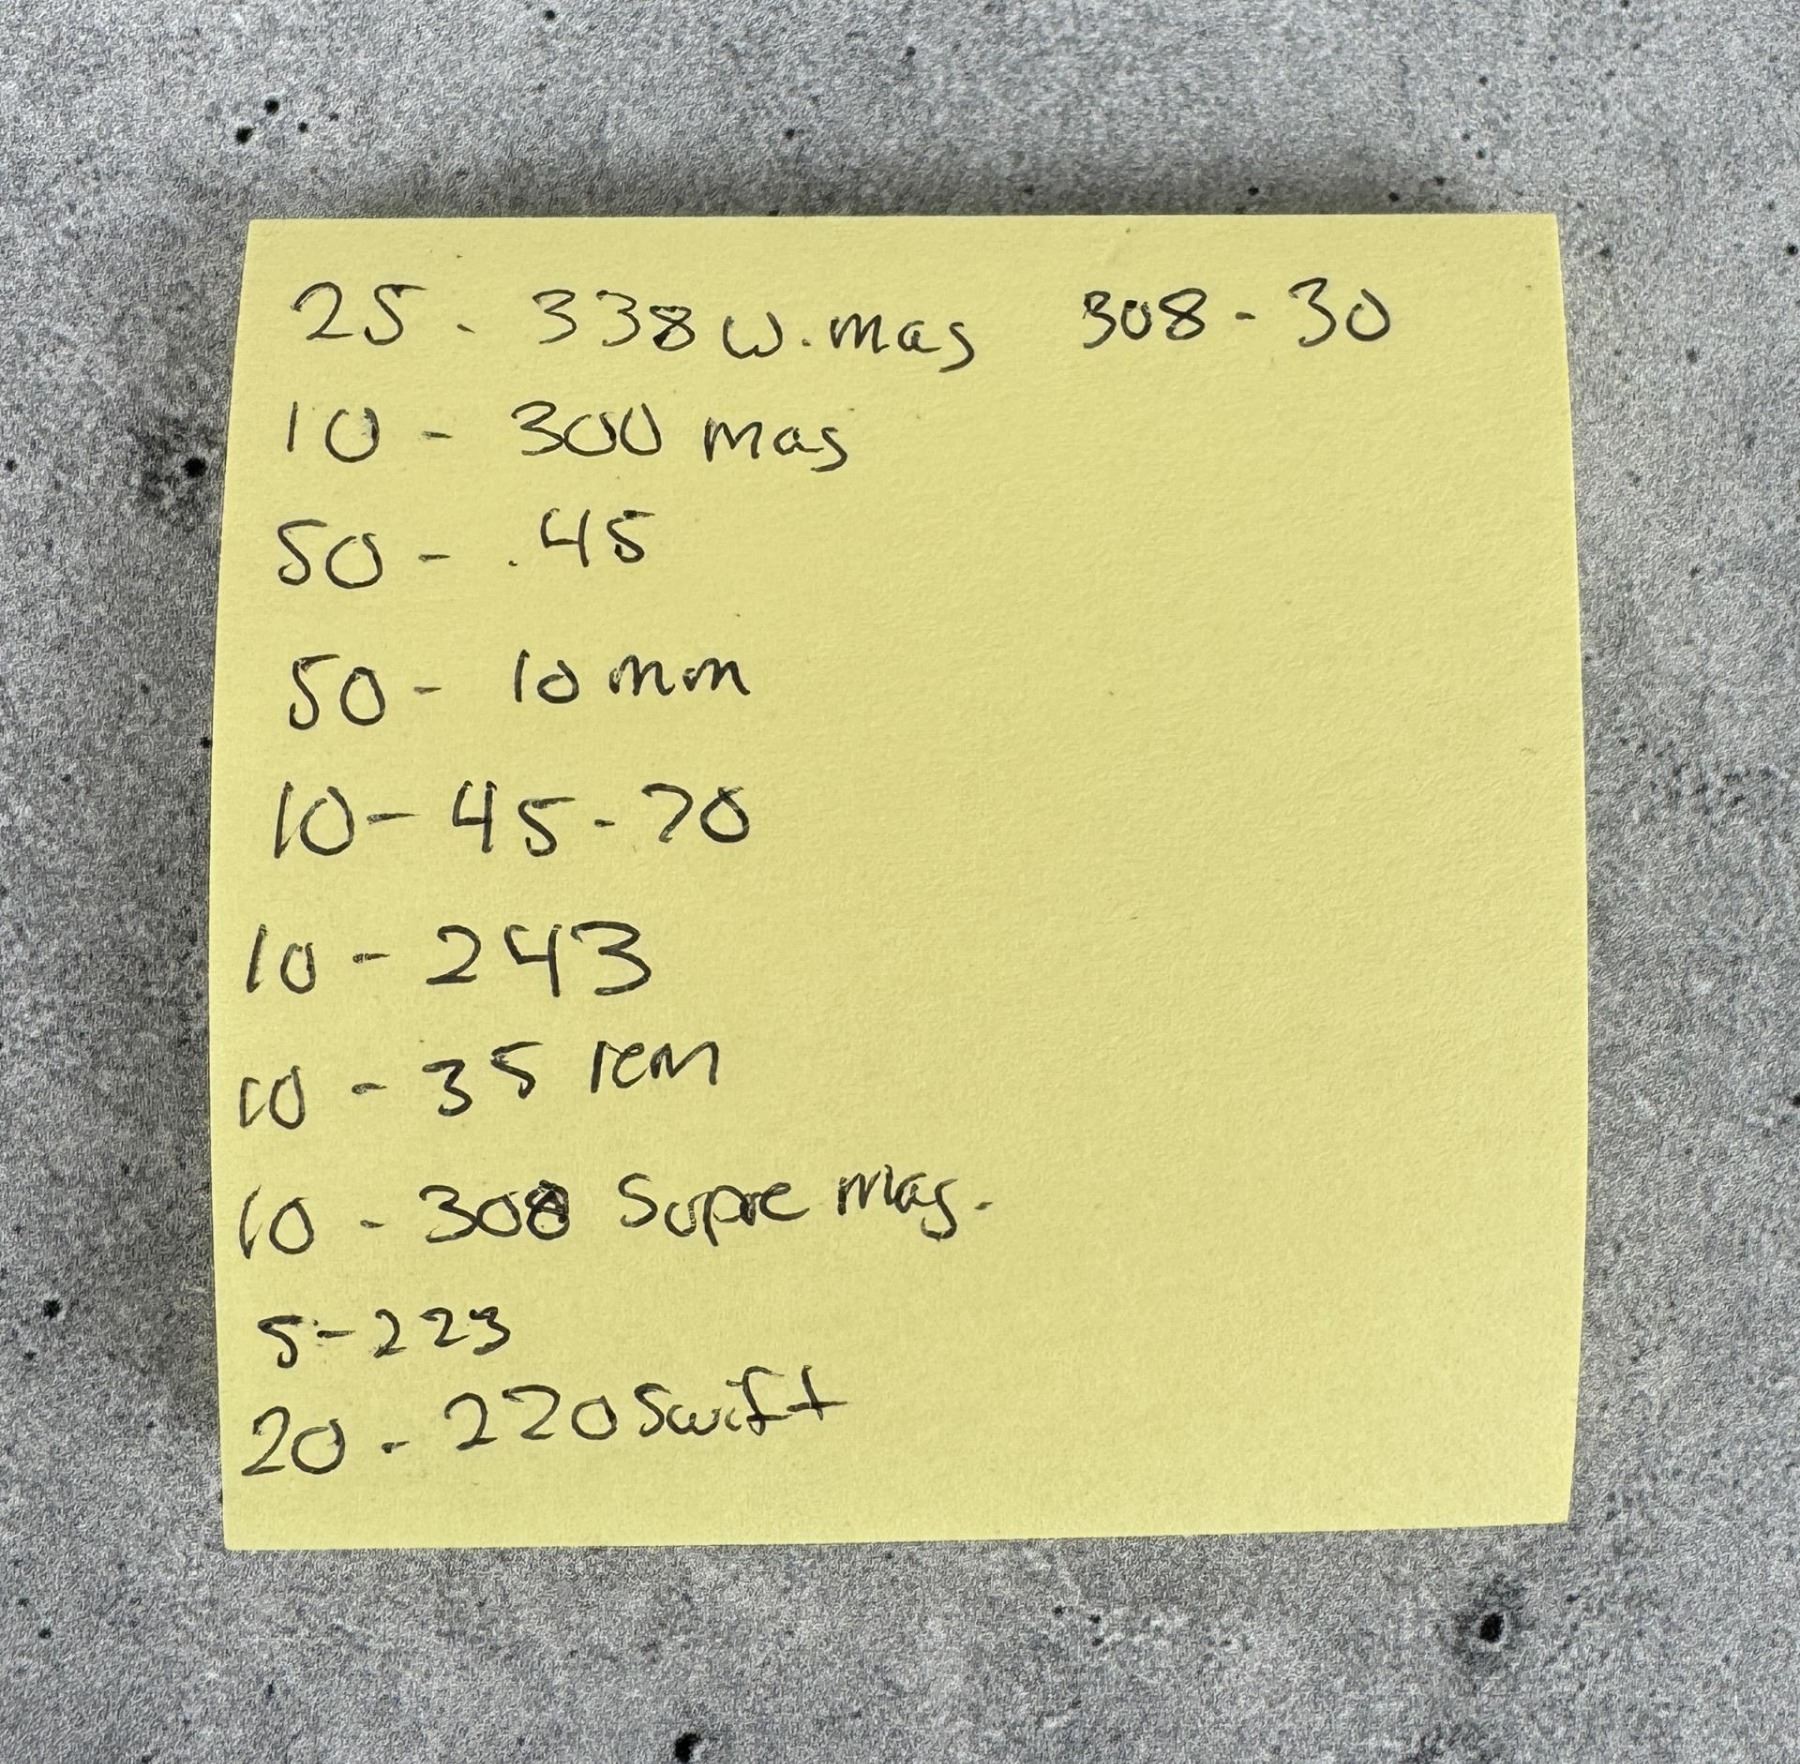 25 - 338 w. mag 308 - 30
10 - 300 mag
50 - .45
50 - 10 mm
10 - 45 - 70
10 - 243
10 - 35 rem
10 - 308 Supre mag.
5 - 223
20 - 220 Swift